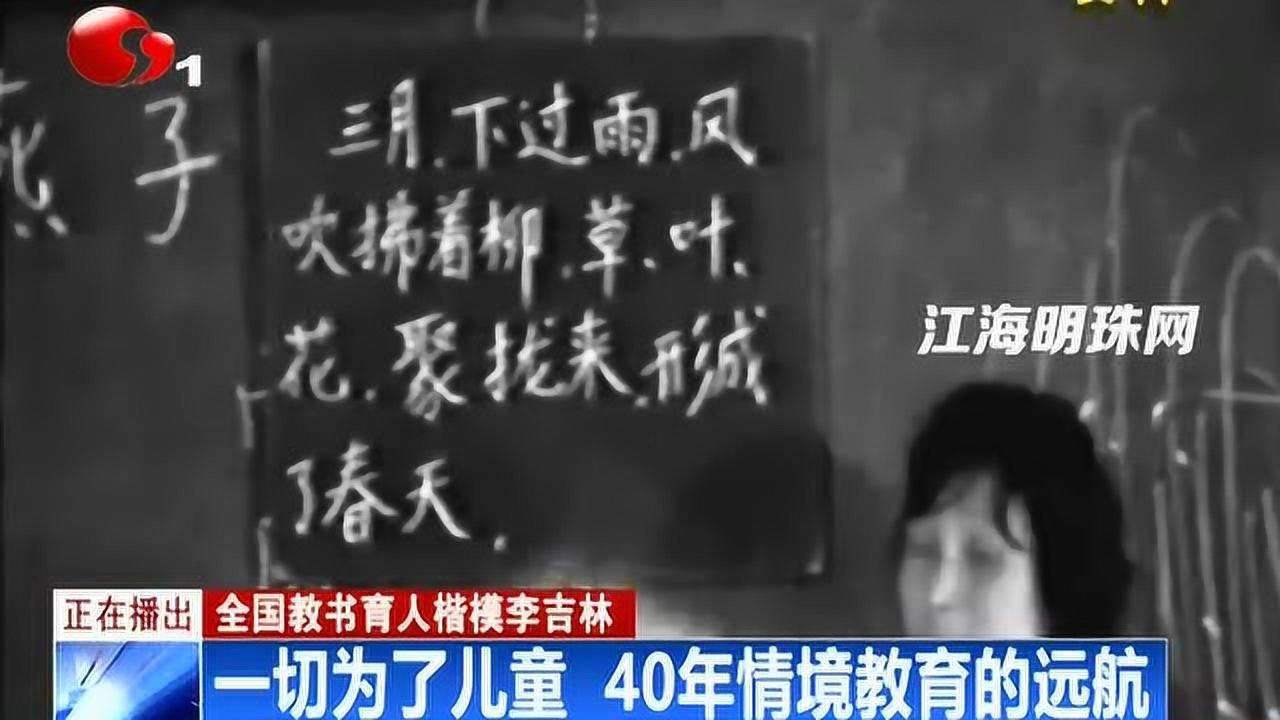 1
燕子
三月.下过雨.风
吹拂着柳.草.叶.
花.聚拢来.形成
了春天.
江海明珠网
正在播出
全国教书育人楷模李吉林
一切为了儿童 40年情境教育的远航